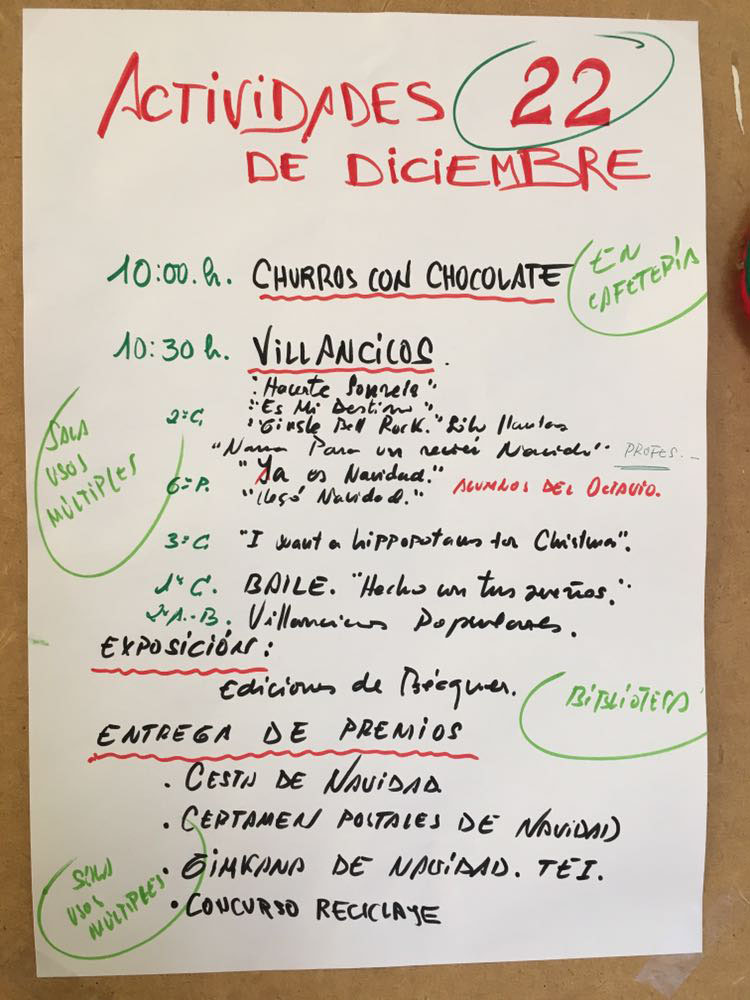 ACTIVIDADES 22
DE DICIEMBRE
10:00.h. CHURROS CON CHOCOLATE
EN
CAFETERÍA
10:30 h. VILLANCICOS.
"Hacerte Sonreír"
"Es Mi Destino"
2º C. "Gingle Bell Rock."
"Nana Para un recién Nacido" PROFES...
"Ya es Navidad."
6º P. "Llegó Navidad." ALUMNOS DEL OCTAVIO.
SALA
USOS
MÚLTIPLES
3º C. "I want a hippopotamus for Christmas".
1º C. BAILE. "Hecho con tus sueños."
2º A.-B. Villancicos Populares.
EXPOSICIÓN:
Ediciones de Bécquer.
BIBLIOTECA
ENTREGA DE PREMIOS
. CESTA DE NAVIDAD
. CERTAMEN POSTALES DE NAVIDAD
. GIMKANA DE NAVIDAD. TEI.
. CONCURSO RECICLAJE
SALA
USOS
MÚLTIPLES